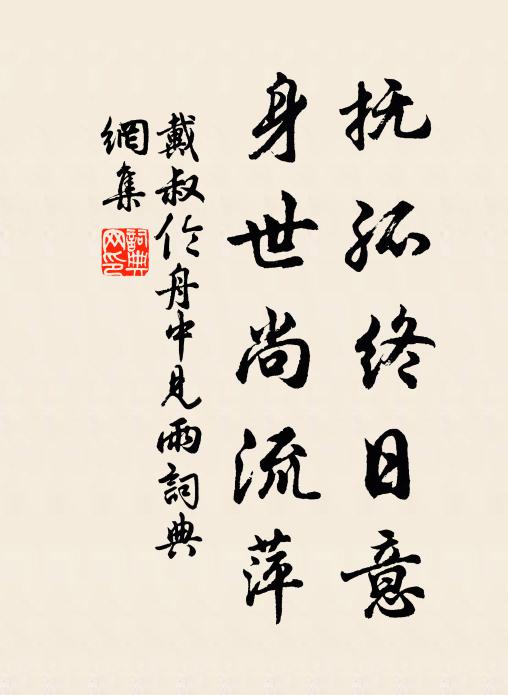 抚孤终日意
身世尚流萍
戴叔伦舟中見雨詞典
網集
詞典
网印